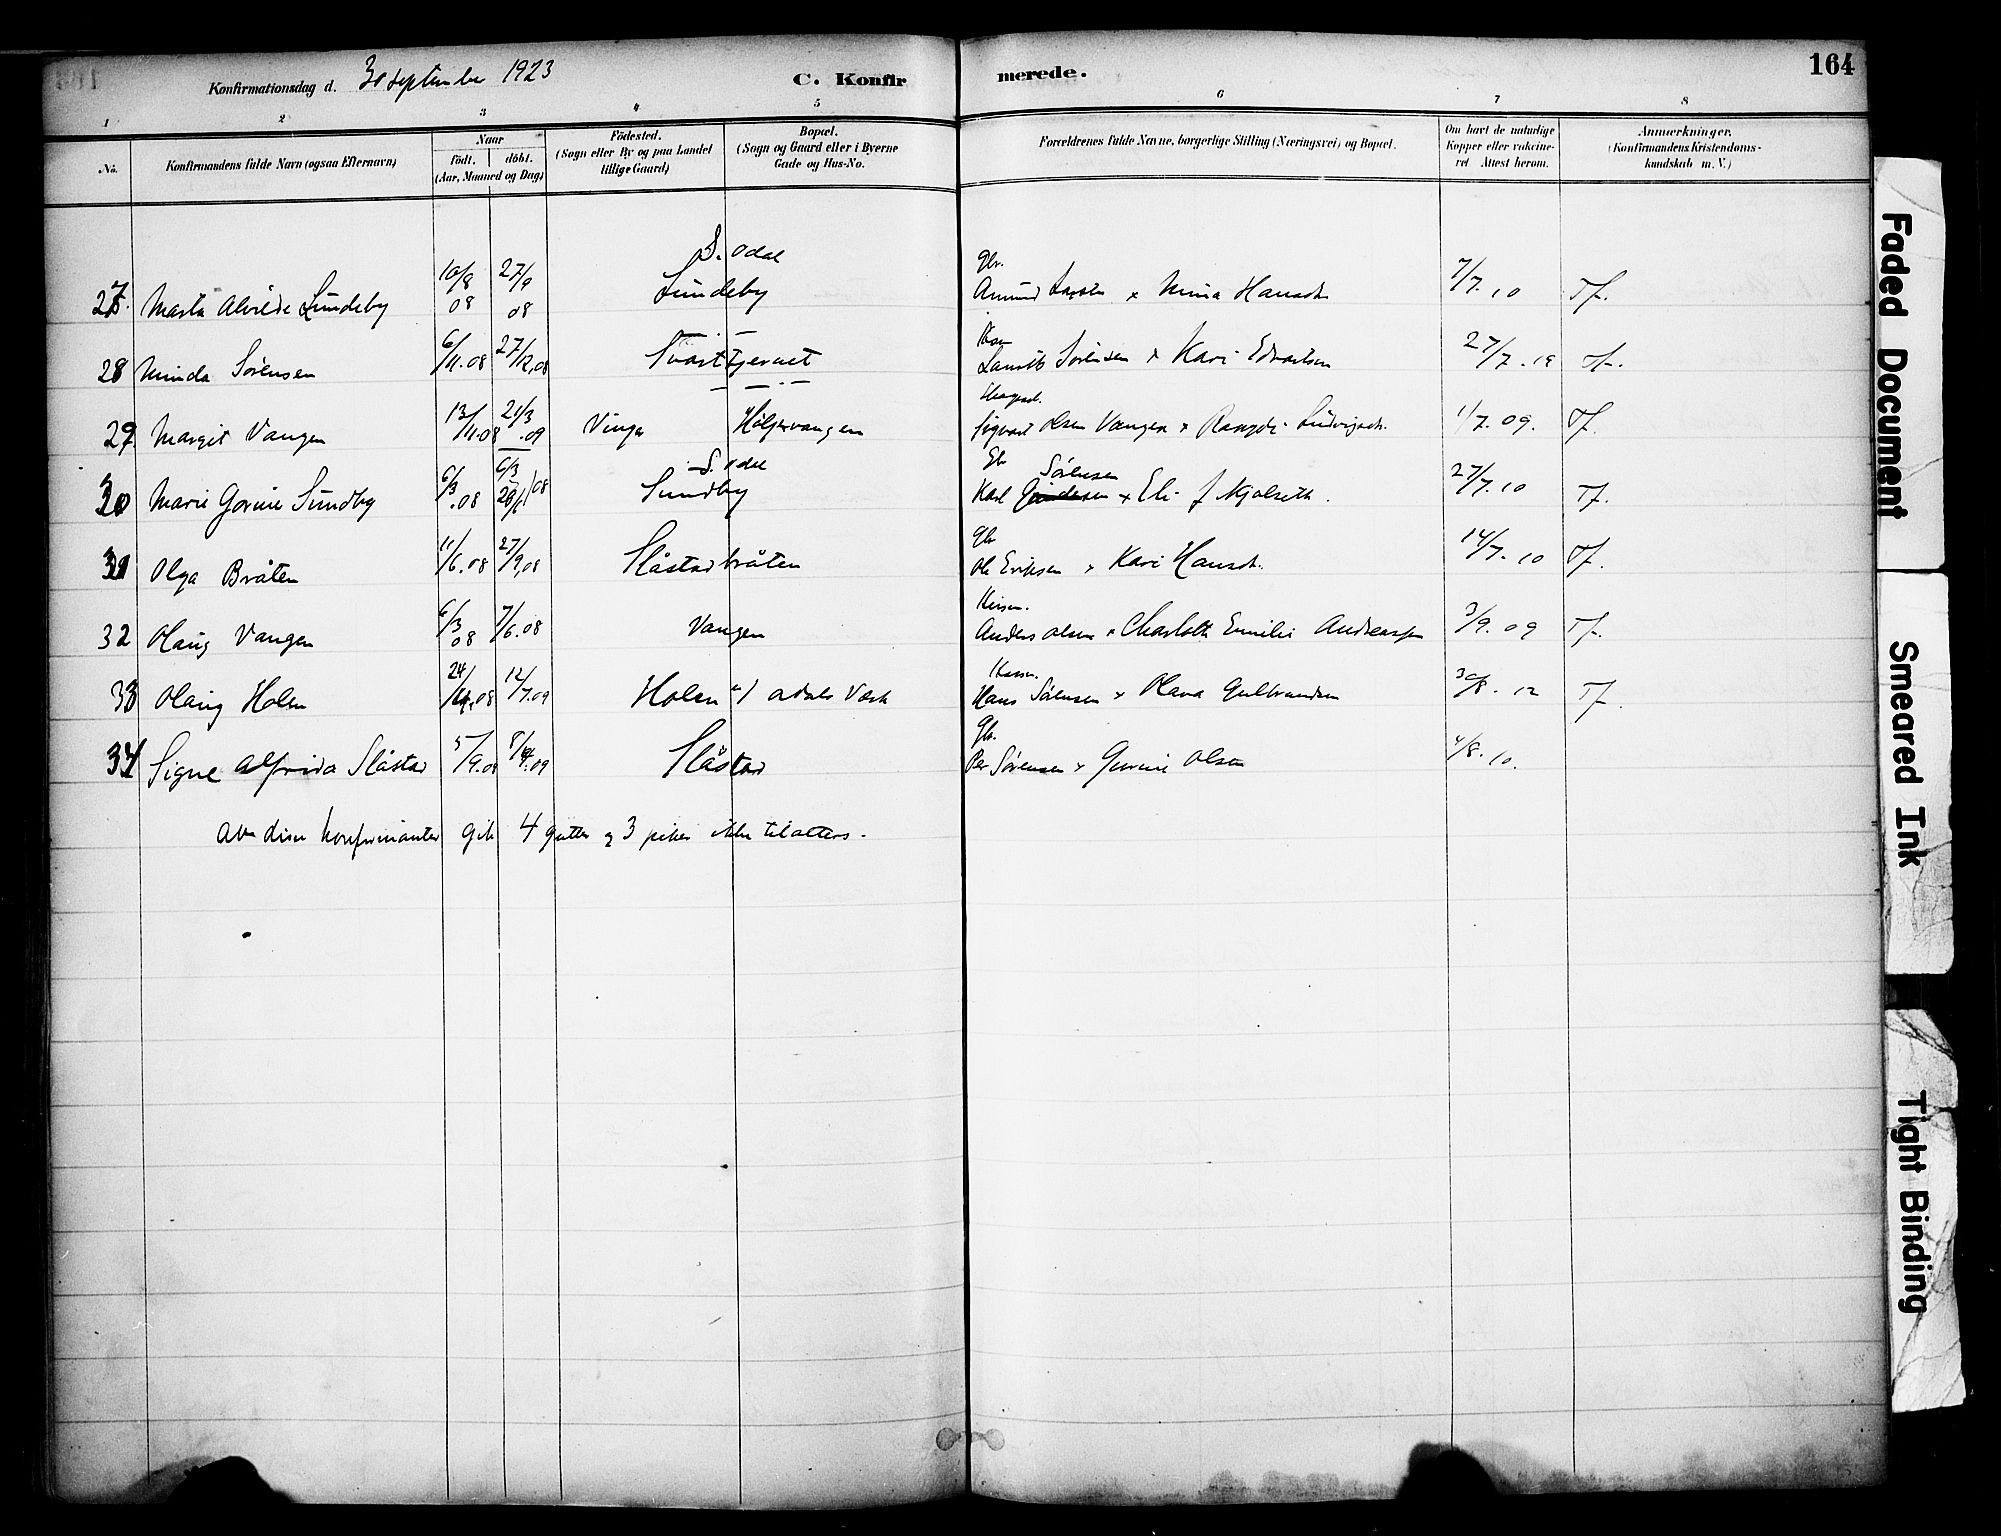 Konfirmationsdag d. 30 september 1923 C. Konfirmerede. 164
1 2 3 4 5 6 7 8
No. Konfirmandens fulde Navn (ogsaa Efternavn)
Naar
födt. döbt.
(Aar, Maaned og Dag)
Födested.
(Sogn eller By og paa Landet
tillige Gaard)
Bopæl.
(Sogn og Gaard eller i Byerne
Gade og Hus-No.
Forældrenes fulde Navne, borgerlige Stilling (Næringsvei) og Bopæl.
Om havt de naturlige
Kopper eller vakcine-
ret Attest herom.
Anmærkninger.
(Konfirmandens Kristendoms-
kundskab m. V.)
S. Odal
27. Marta Alvilde Lundeby 10/8 08 27/9 08 Lundeby Gbr. Amund x Mina Hansdtr 7/7. 10 Tf.
28 Minda Sørensen 6/11.08 27/12.08 Svarttjernet Laurits Sørensen x Kari Edvartsen 27/7. Tf.
29. Margit Vangen 13/11.08 21/3.09 Vinger Holjervangen Sigvart Olsen Vangen x 1/7. 09. Tf.
S. Odal
30 Marie Gorine Sundby 6/3.08 Sundby Karl Sørensen x Eli 27/7.10 Tf.
31 Olga Bråten 11/6.08 27/9.08 Slåstadbråten Gbr Ole Eriksen x Kari Hansdt. 14/7. 10 Tf.
32 Olaug Vangen 6/3 08 7/6.08 Vangen Anders Olsen x Charlotte Emilie Andreassen 3/9. 09 Tf.
33 Olaug Holen 12/7.09 Holen Odals Verk Hans Sørensen x Olava Gulbrandsen 30/8. 12 Tf.
34 Signe Alfrida Slåstad 5/9.08 Slåstad Gbr. Per Sørensen x Gurine Olsen 4/8. 10.
Av disse konfirmanter gik 4 gutter og 3 piker ikke til alters.
Faded Document
Smeared Ink
Tight Binding